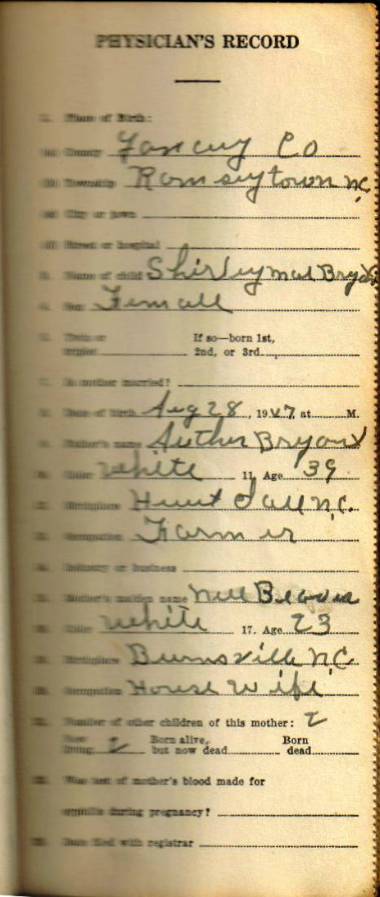 PHYSICIAN'S RECORD
1. Place of Birth:
(a) County Yancey Co
(b) Township Ramseytown N.C.
(c) City or town
(d) Street or hospital
3. Name of child Shirley Mae Bryant
4. Sex Female
5. Twin or triplet If so—born 1st, 2nd, or 3rd
7. Is mother married?
8. Date of birth Aug 28, 1947, at M.
9. Father's name Auther Bryant
10. Color White 11. Age 39
12. Birthplace Hunt dale N.C.
13. Occupation Farmer
14. Industry or business
15. Mother's maiden name Nell
16. Color White 17. Age 23
18. Birthplace Burnsville N.C.
19. Occupation House Wife
Number of other children of this mother: 2
Now living 2 Born alive, but now dead Born dead
Was test of mother's blood made for
syphilis during pregnancy?
Date filed with registrar